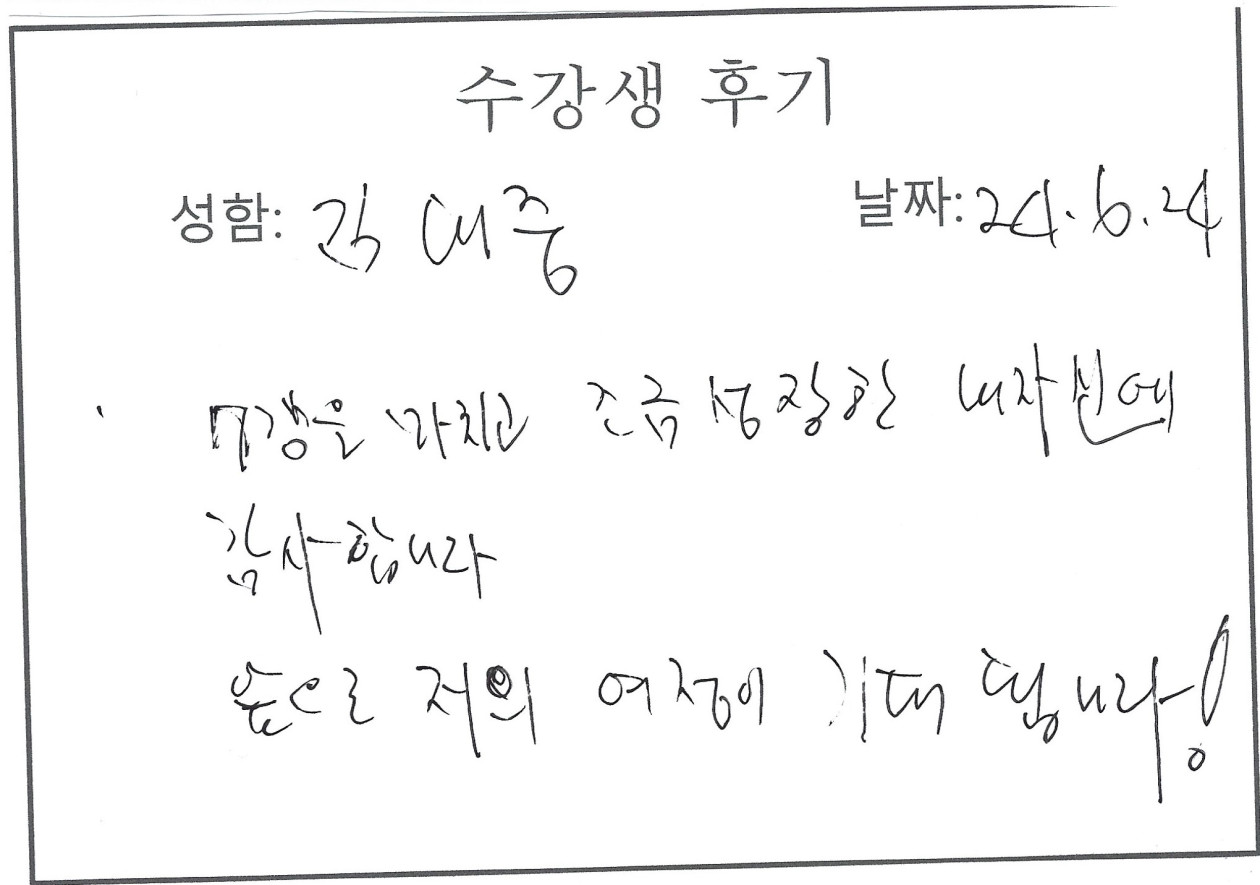 수강생 후기
성함: 김대중 날짜: 24.6.24
7강을 마치고 조금 성장한 내자신에
감사합니다
앞으로 저의 여정이 기대 됩니다!